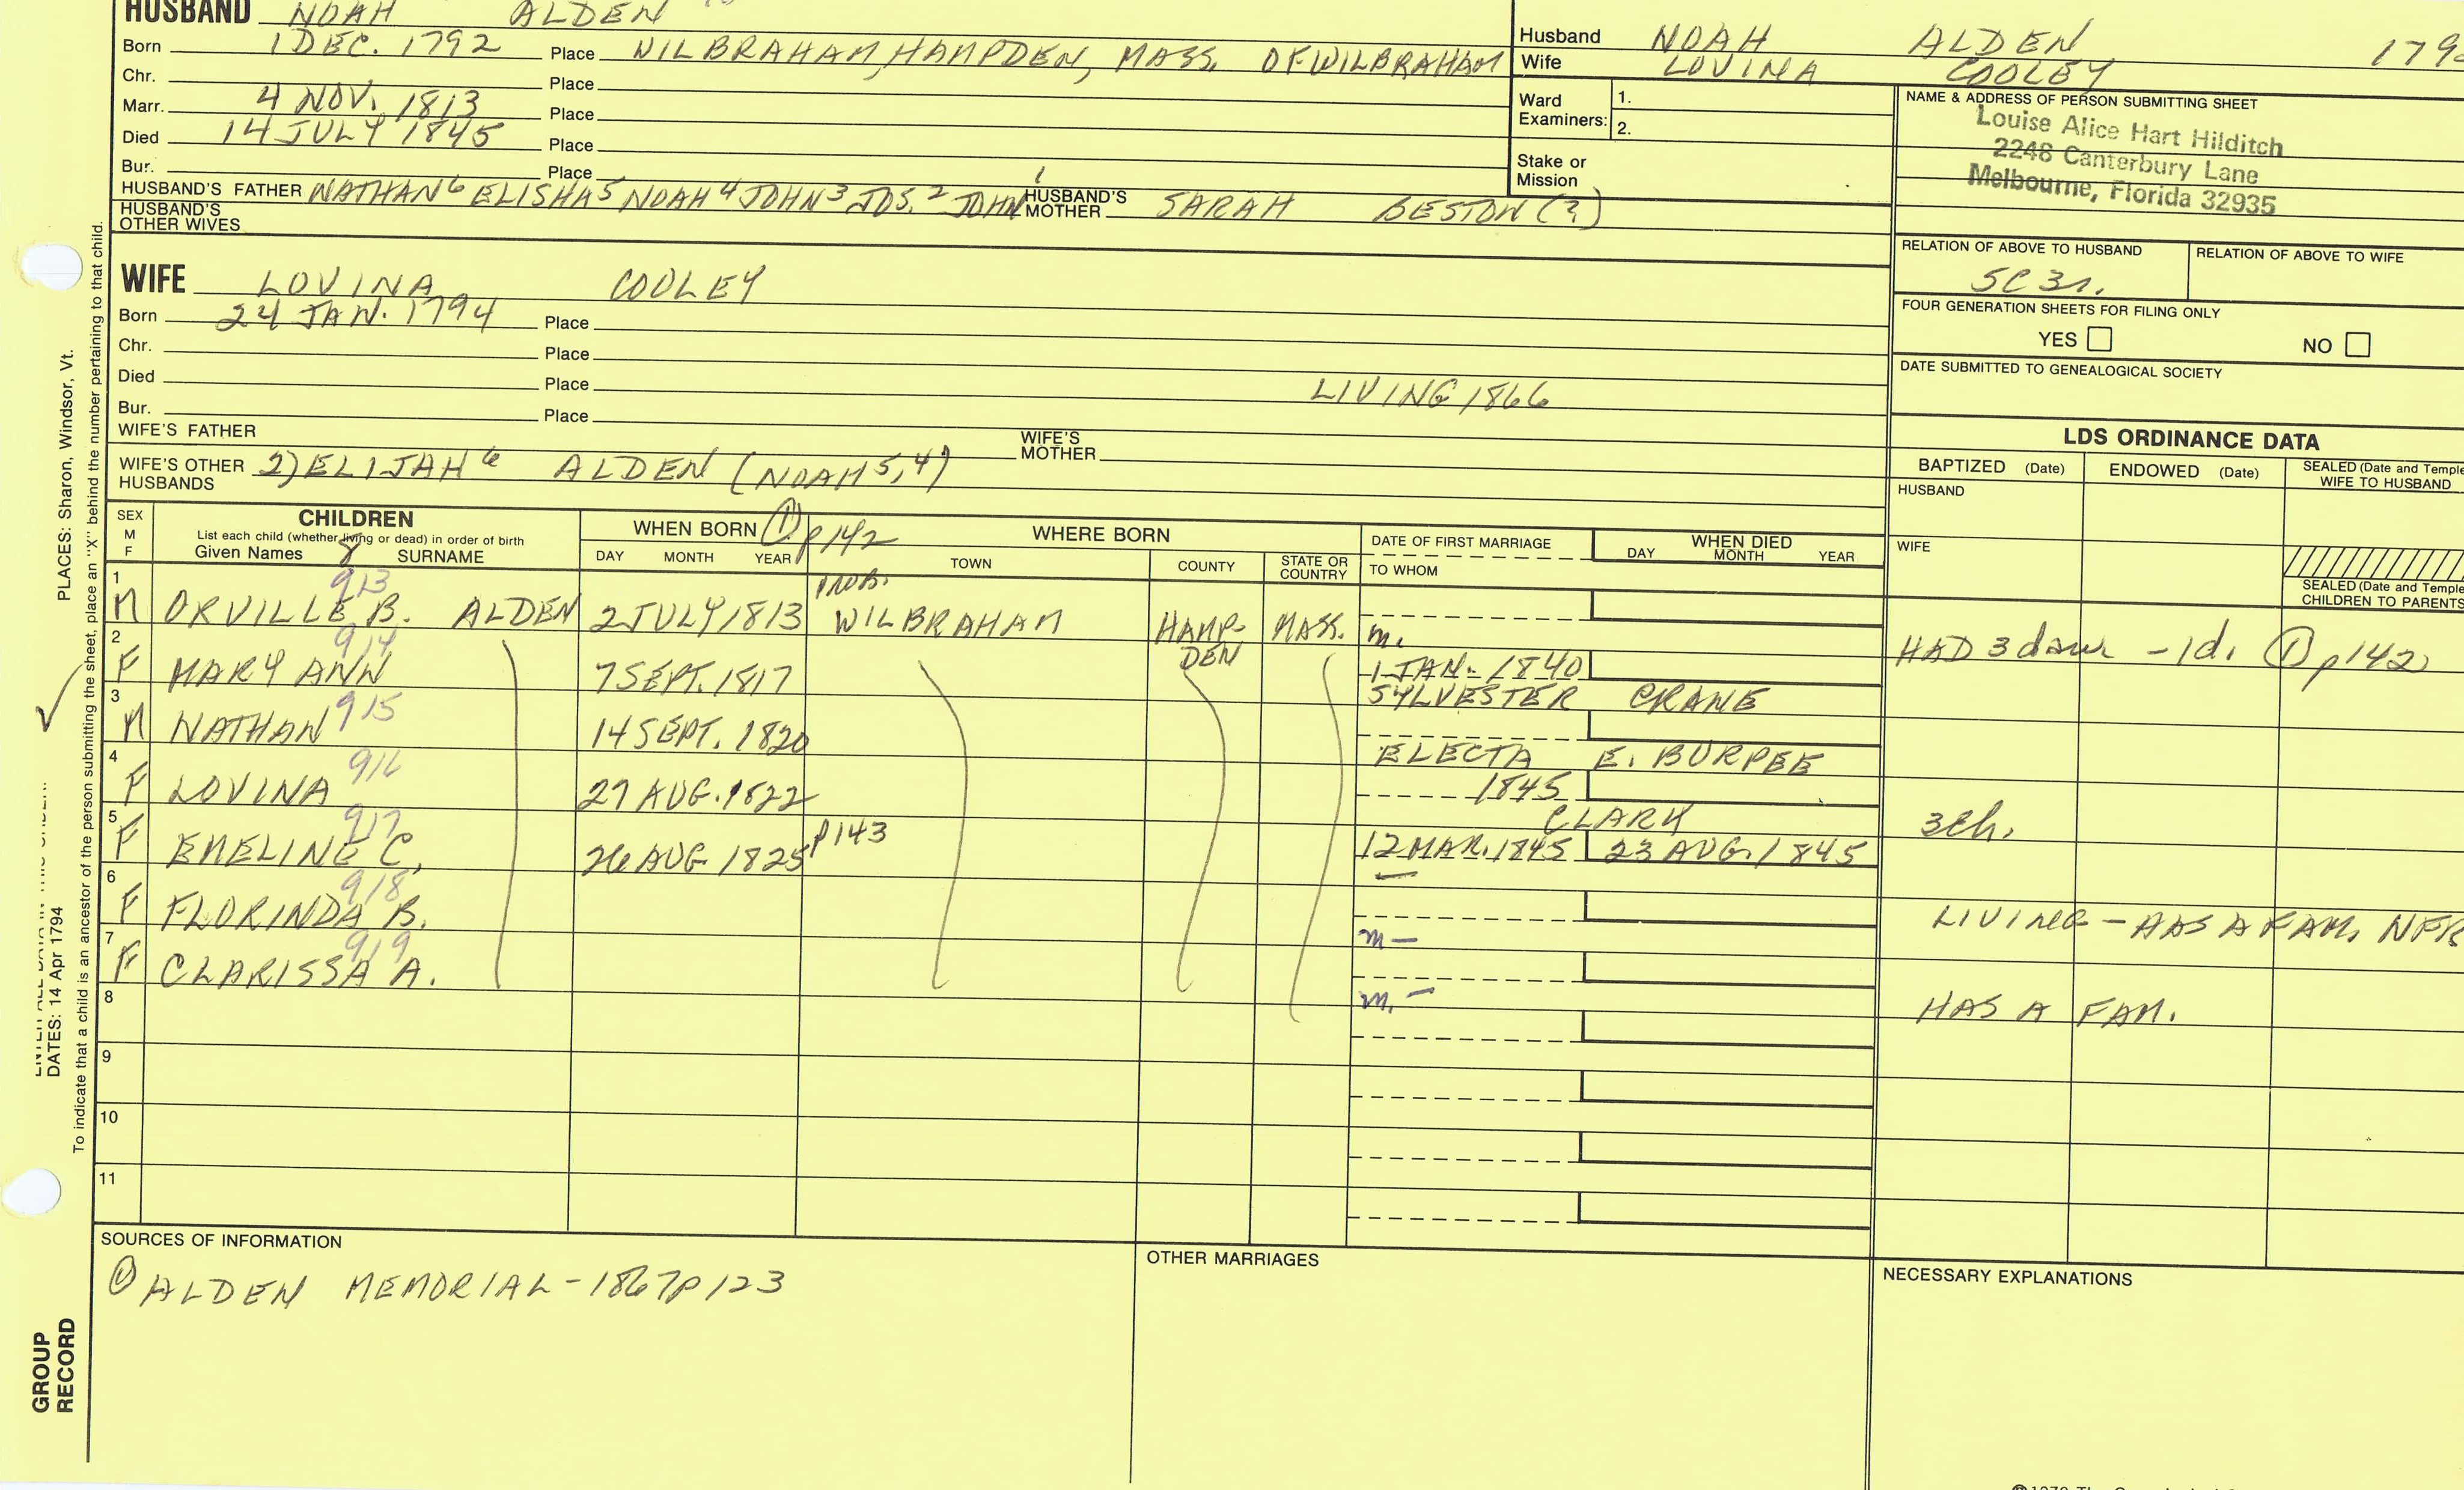 HUSBAND NOAH ALDEN
Born 1 DEC. 1792 Place WILBRAHAM, HAMPDEN, MASS. OF WILBRAHAM
Chr. Place
Marr. 4 NOV. 1813 Place
Died 14 JULY 1845 Place
Bur. Place
HUSBAND'S FATHER NATHAN 6 ELISHA 5 NOAH 4 JOHN 3 JOS. 2 JOHN 1 HUSBAND'S MOTHER SARAH BESTOW (?)
HUSBAND'S OTHER WIVES
Husband NOAH ALDEN
Wife LOVINA COOLEY
Ward Examiners: 1.
2.
Stake or Mission
NAME & ADDRESS OF PERSON SUBMITTING SHEET
Louise Alice Hart Hilditch
2248 Canterbury Lane
Melbourne, Florida 32935
RELATION OF ABOVE TO HUSBAND RELATION OF ABOVE TO WIFE
5C 3r.
FOUR GENERATION SHEETS FOR FILING ONLY
YES NO
DATE SUBMITTED TO GENEALOGICAL SOCIETY
WIFE LOVINA COOLEY
Born 24 JAN. 1794 Place
Chr. Place
Died Place LIVING 1866
Bur. Place
WIFE'S FATHER WIFE'S MOTHER
WIFE'S OTHER HUSBANDS 2) ELIJAH 6 ALDEN (NOAH 5,4)
LDS ORDINANCE DATA
BAPTIZED (Date) ENDOWED (Date) SEALED (Date and Temple
WIFE TO HUSBAND
HUSBAND
WIFE
SEALED (Date and Temple
CHILDREN TO PARENTS
SEX M F
CHILDREN
List each child (whether living or dead) in order of birth
Given Names 8 SURNAME
WHEN BORN ① p 142
DAY MONTH YEAR
WHERE BORN
TOWN COUNTY STATE OR COUNTRY
DATE OF FIRST MARRIAGE
TO WHOM
WHEN DIED
DAY MONTH YEAR
1 M 913 ORVILLE B. ALDEN 2 JULY 1813 PROB. WILBRAHAM HAMPDEN MASS. m.
HAD 3 daus - 1 d. ① p 142
2 F 914 MARY ANN 7 SEPT. 1817 1 JAN. 1840
SYLVESTER CRANE
3 M 915 NATHAN 14 SEPT. 1820
ELECTA E. BURPEE
4 F 916 LOVINA 27 AUG. 1822 1845
CLARK 3 ch.
5 F 917 EMELINE C. 26 AUG 1825 p 143 12 MAR. 1845 23 AUG. 1845
—
6 F 918 FLORINDA B. LIVING - HAS A FAM. NFR
m —
7 F 919 CLARISSA A.
m. — HAS A FAM.
8
9
10
11
SOURCES OF INFORMATION
① ALDEN MEMORIAL - 1867 p 123
OTHER MARRIAGES
NECESSARY EXPLANATIONS
PLACES: Sharon, Windsor, Vt.
DATES: 14 Apr 1794
To indicate that a child is an ancestor of the person submitting the sheet, place an "X" behind the number pertaining to that child.
GROUP RECORD